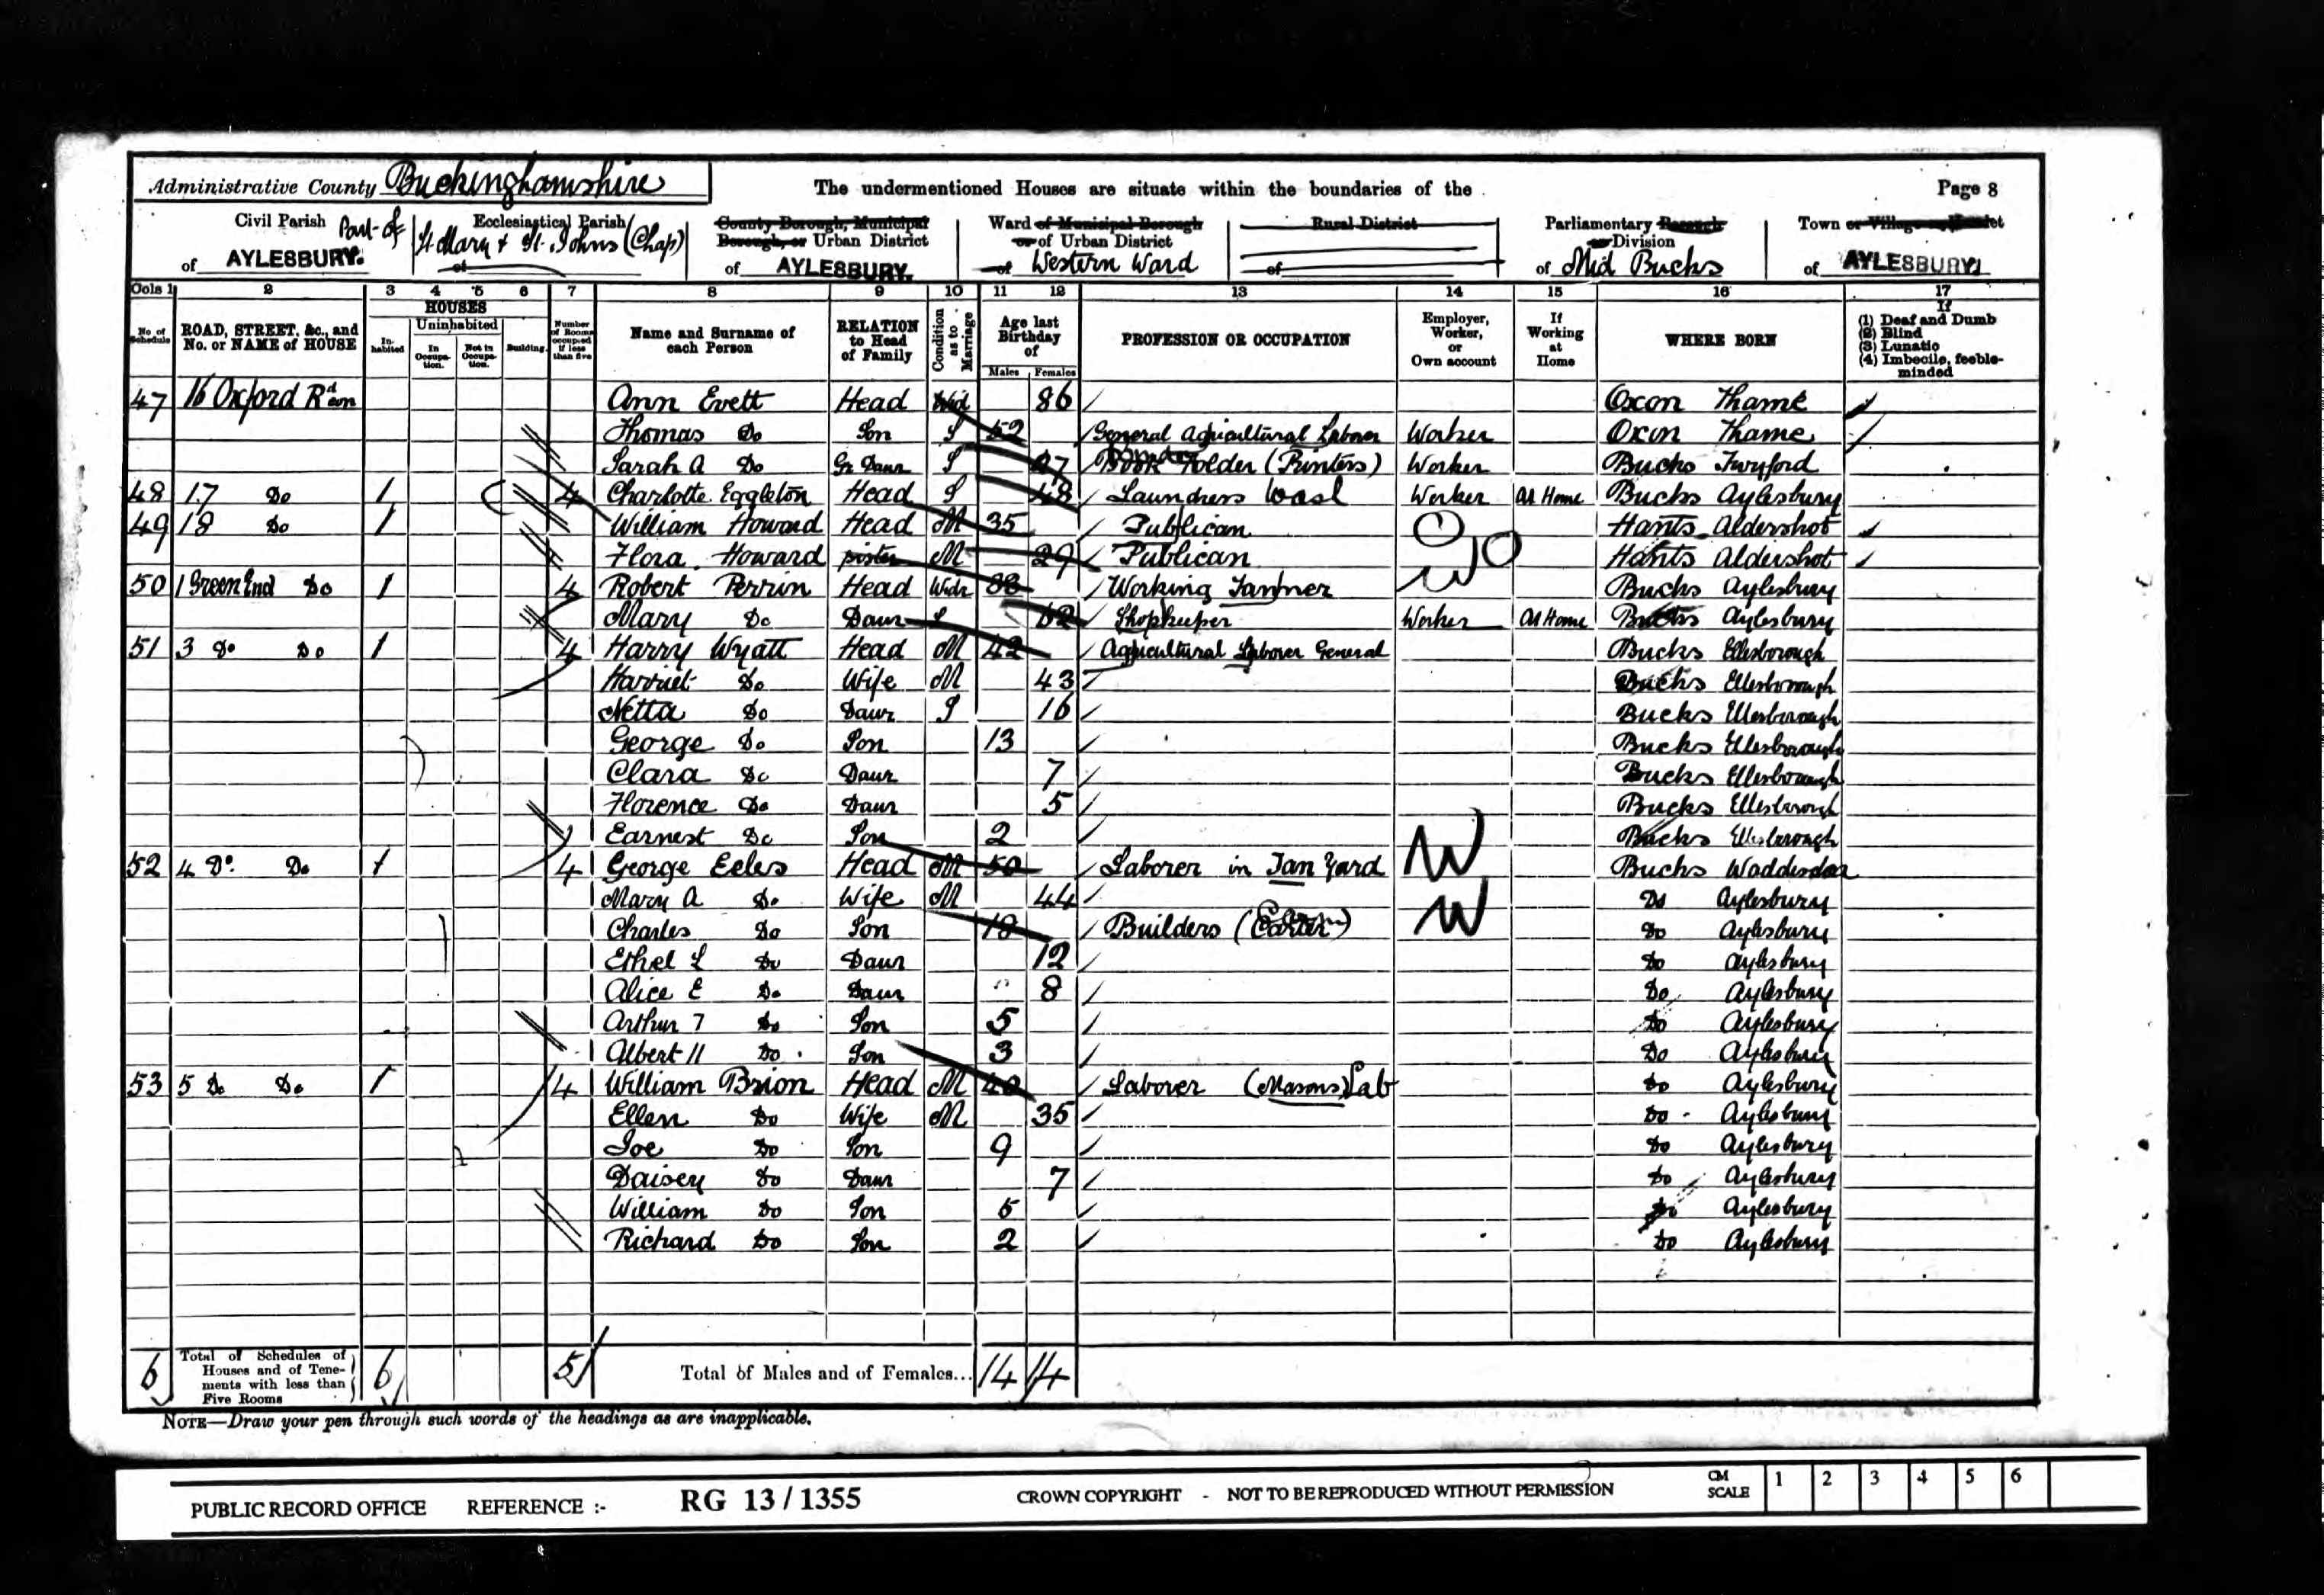 Administrative County Buckinghamshire The undermentioned Houses are situate within the boundaries of the Page 8
Civil Parish Part of of AYLESBURY.
Ecclesiastical Parish of St Mary + St. Johns (Chap)
County Borough, Municipal Borough, or Urban District of AYLESBURY.
Ward of Municipal Borough or of Urban District of Western Ward
Rural District of
Parliamentary Borough or Division of Mid Bucks
Town or Village or Hamlet of AYLESBURY
Cols 1 2 3 4 5 6 7 8 9 10 11 12 13 14 15 16 17
No of Schedule
ROAD, STREET, &c., and No. or NAME of HOUSE
HOUSES
In-habited
Uninhabited
In Occupa-tion.
Not in Occupa-tion.
Building.
Number of Rooms occupied if less than five
Name and Surname of each Person
RELATION to Head of Family
Condition as to Marriage
Age last Birthday of
Males Females
PROFESSION OR OCCUPATION
Employer, Worker, or Own account
If Working at Home
WHERE BORN
If
(1) Deaf and Dumb
(2) Blind
(3) Lunatic
(4) Imbecile, feeble-minded
47 16 Oxford Rd Ann Evett Head Wid 86 Oxon Thame
Thomas Do Son S 52 General Agricultural Laborer Worker Oxon Thame
Sarah A Do Gr Daur S 27 Book Folder (Printers) Worker Bucks Twyford
48 17 Do 1 4 Charlotte Eggleton Head S 48 Laundress Wash Worker At Home Bucks Aylesbury
49 18 Do 1 William Howard Head M 35 Publican Hants Aldershot
Flora Howard sister M 29 Publican Hants Aldershot
50 1 Green End Do 1 4 Robert Perrin Head Widr 88 Working Tanner W Bucks Aylesbury
Mary Do Daur S 62 Shopkeeper Worker At Home Bucks Aylesbury
51 3 Do Do 1 4 Harry Wyatt Head M 42 Agricultural Laborer General Bucks Ellesborough
Harriet Do Wife M 43 Bucks Ellesborough
Netta Do Daur S 16 Bucks Ellesborough
George Do Son 13 Bucks Ellesborough
Clara Do Daur 7 Bucks Ellesborough
Florence Do Daur 5 Bucks Ellesborough
Earnest Do Son 2 Bucks Ellesborough
52 4 Do. Do 1 4 George Eeles Head M 50 Laborer in Tan Yard W Bucks Waddesdon
Mary A Do Wife M 44 Do Aylesbury
Charles Do Son 18 Builders (Carter) W Do Aylesbury
Ethel L Do Daur 12 Do Aylesbury
Alice E Do Daur 8 Do Aylesbury
Arthur T Do Son 5 Do Aylesbury
Albert H Do Son 3 Do Aylesbury
53 5 Do Do 1 4 William Brion Head M 40 Laborer (Masons) Lab Do Aylesbury
Ellen Do Wife M 35 Do Aylesbury
Joe Do Son 9 Do Aylesbury
Daisey Do Daur 7 Do Aylesbury
William Do Son 5 Do Aylesbury
Richard Do Son 2 Do Aylesbury
6 Total of Schedules of Houses and of Tene-ments with less than Five Rooms 6 5 Total of Males and of Females... 14 14
NOTE—Draw your pen through such words of the headings as are inapplicable.
PUBLIC RECORD OFFICE REFERENCE :- RG 13 / 1355 CROWN COPYRIGHT - NOT TO BE REPRODUCED WITHOUT PERMISSION CM SCALE 1 2 3 4 5 6